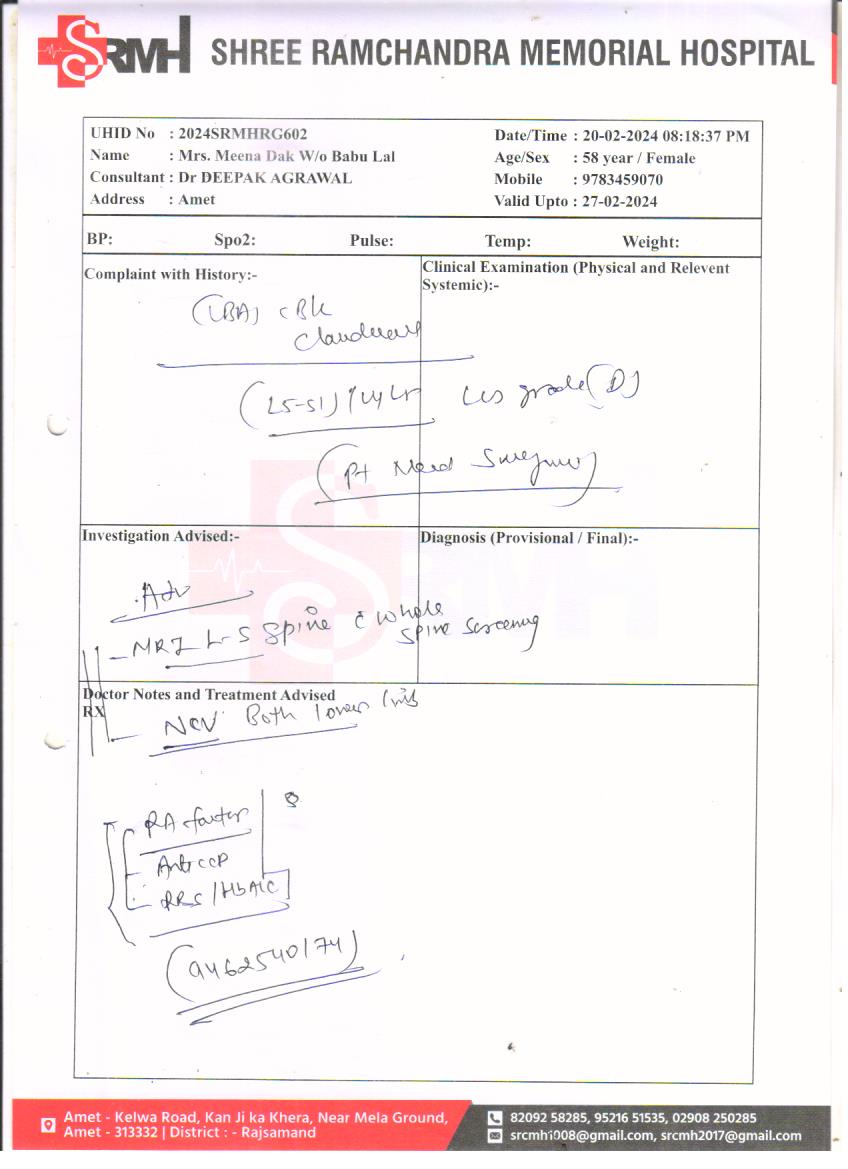 SRMH SHREE RAMCHANDRA MEMORIAL HOSPITAL
UHID No : 2024SRMHRG602
Date/Time : 20-02-2024 08:18:37 PM
Name : Mrs. Meena Dak W/o Babu Lal
Age/Sex : 58 year / Female
Consultant : Dr DEEPAK AGRAWAL
Mobile : 9783459070
Address : Amet
Valid Upto : 27-02-2024
BP: Spo2: Pulse: Temp: Weight:
Complaint with History:-
Clinical Examination (Physical and Relevent
Systemic):-
(LBA) c B/L
(L5-S1)
grade (D)
(Pt Need
Investigation Advised:-
Diagnosis (Provisional / Final):-
Adv
- MRI L-S Spine c̄ Whole
Spine Screening
Doctor Notes and Treatment Advised
RX
- NCV Both lower limbs
RA factor
- Anti CCP
- RBS / HbA1C
(9462540174)
Amet - Kelwa Road, Kan Ji ka Khera, Near Mela Ground,
Amet - 313332 | District : - Rajsamand
82092 58285, 95216 51535, 02908 250285
srcmh1008@gmail.com, srcmh2017@gmail.com